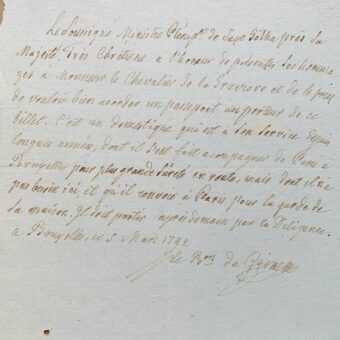 Le soussigné Ministre Plénip.re de Saxe Gotha près Sa
Majesté Très Chrétienne a l'honneur de présenter ses homma-
ges à Monsieur le Chevalier de la Graviere et de le prier
de vouloir bien accorder un passeport au porteur de ce
billet. C'est un domestique qui est à son service depuis
longues années, dont il s'est fait accompagner de Paris à
Bruxelles pour plus grande sûreté en route, mais dont il n'a
pas besoin ici, et qu'il renvoie à Paris pour la garde de
sa maison. Il doit partir après demain par la Diligence.
a Bruxelles, ce 5 Mars 1792
le Bon de Grimm